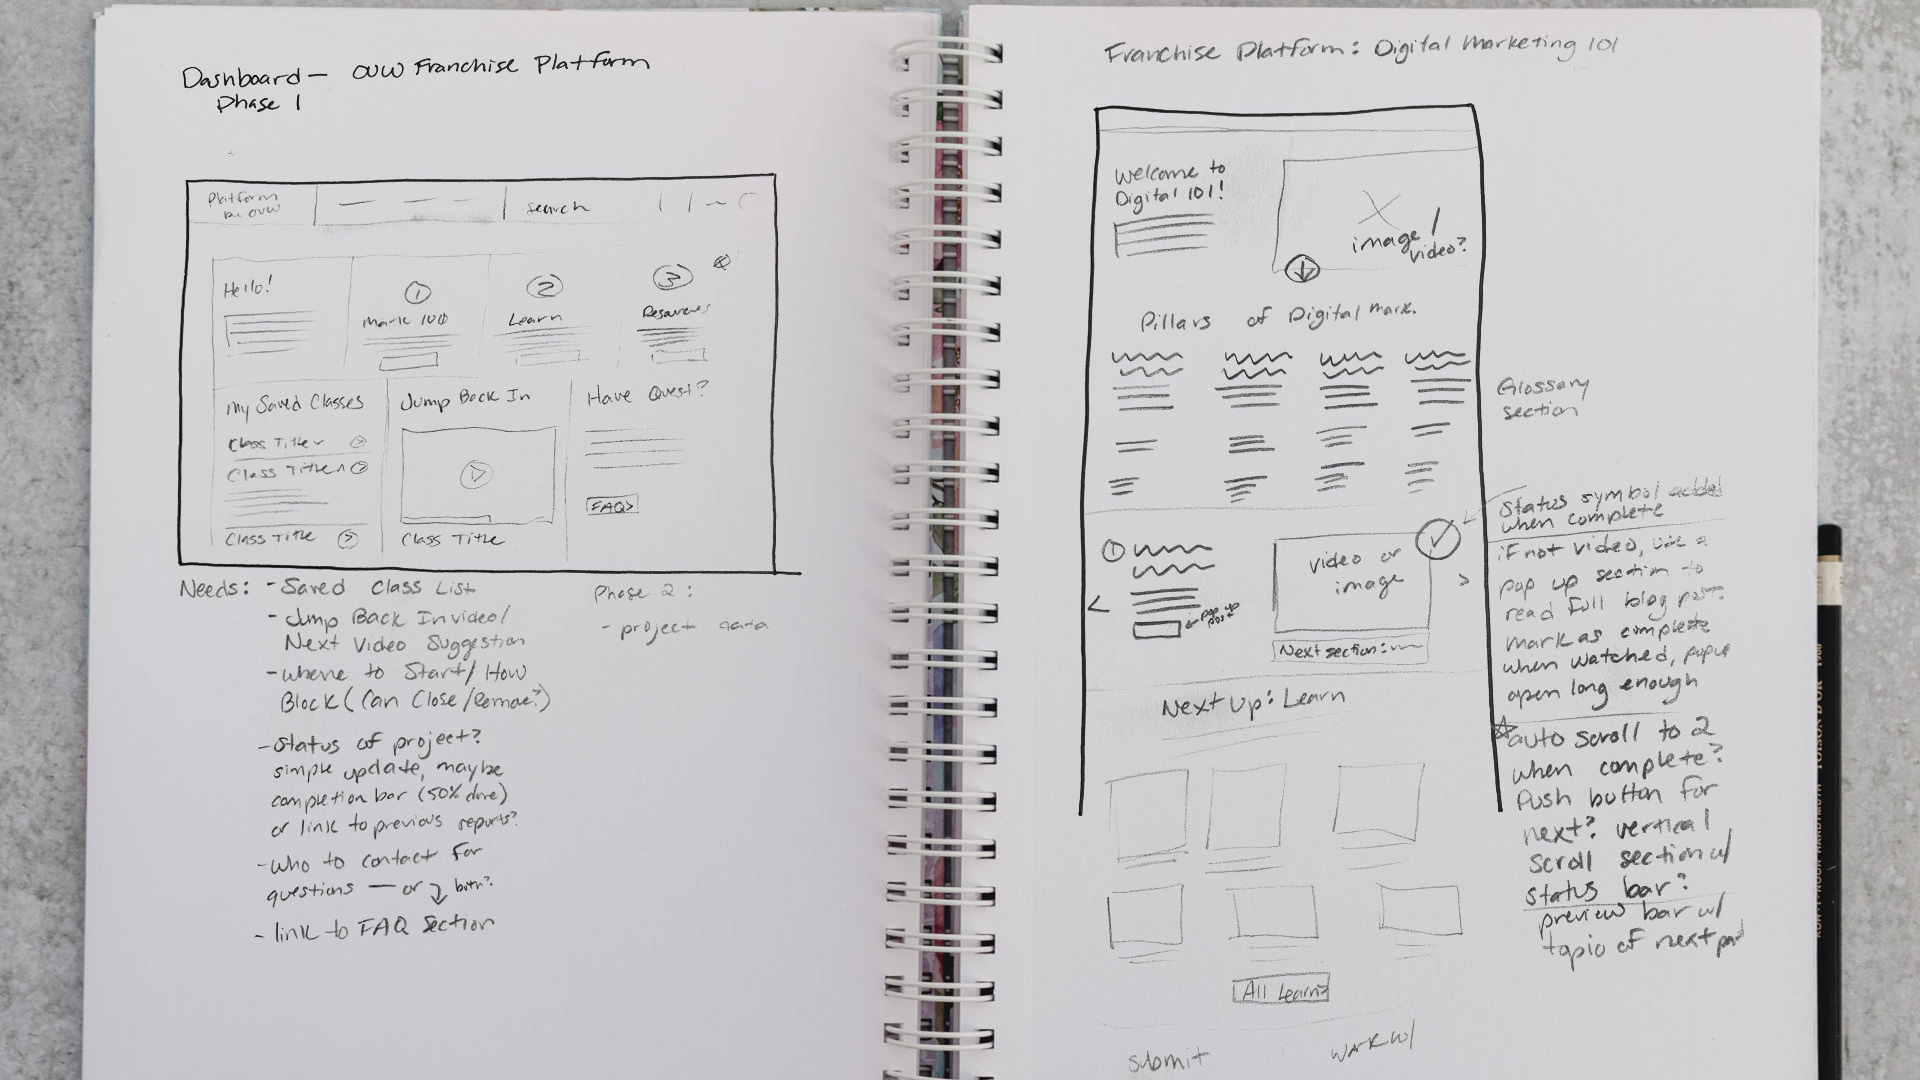 Dashboard — OUW Franchise Platform
Phase 1
Platform
by OUW
Search
Hello!
1
Mark 100
2
Learn
3
Resources
My Saved Classes
Class Title
Class Title
Class Title
Jump Back In
Class Title
Have Quest?
FAQ>
Needs: - Saved Class List
- Jump Back In video/
Next Video Suggestion
- where to Start/How
Block (Can Close/Remove?)
- Status of project?
simple update, maybe
completion bar (50% done)
or link to previous reports?
- who to contact for
questions — or both?
- link to FAQ Section
Phase 2:
- project data
Franchise Platform: Digital Marketing 101
Welcome to
Digital 101!
image/
video?
Pillars of Digital Mark.
Glossary
section
1
pop up
post
<
video or
image
>
Next section:
Status symbol added
when complete
if not video, use a
pop up section to
read full blog post.
mark as complete
when watched, popup
open long enough
auto scroll to 2
when complete?
Push button for
next? vertical
scroll section w/
status bar?
preview bar w/
topic of next part
Next Up: Learn
All Learn>
submit
work w/
TOISON D'OR 1900